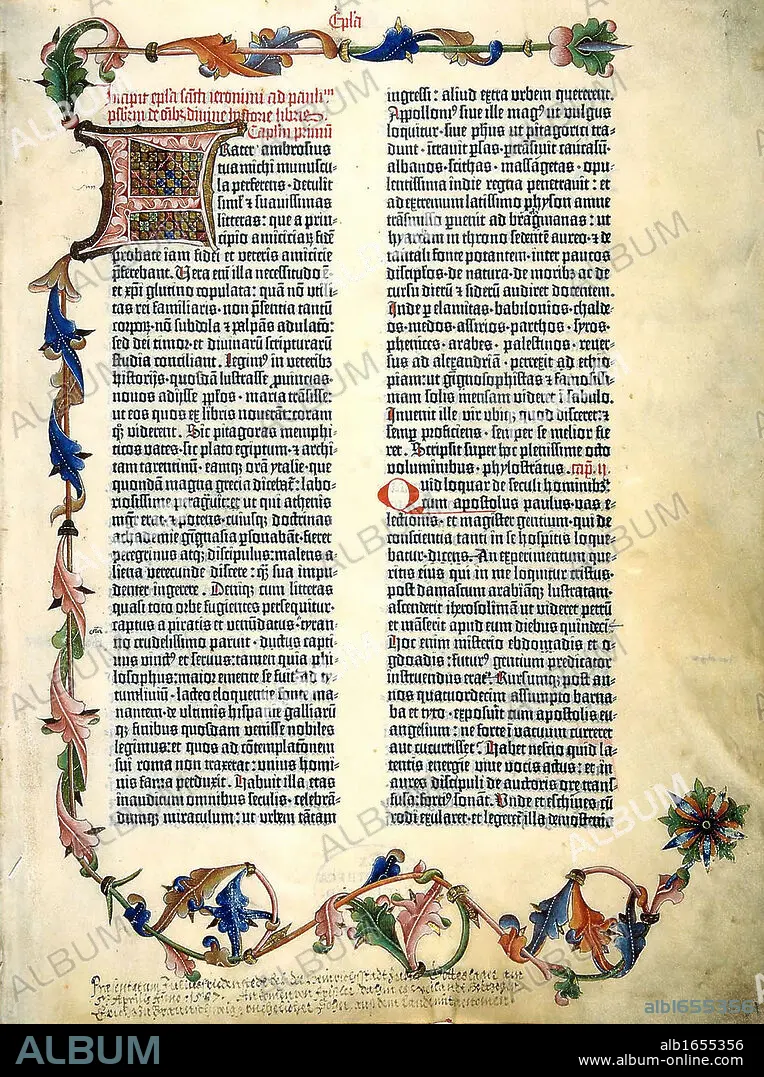 Ep̄l̄a
Incipit epl̄a sancti ieronimi ad paulinum
p̄sbiterum de oībꝫ diuine historie libris.
Caplm̄ primū
Frater ambrosius
tua michi munuscu-
la perferens · detulit
siml̄ ⁊ suauissimas
litteras: que a prin-
cipio amiciciaꝝ fidē
probate iam fidei et veteris amicicie
p̄ferebant. Uera em̄ illa necessitudo ē·
et xp̄i glutino copulata: quā nō vtili-
tas rei familiaris · non p̄sentia tantū
corpoꝝ · nō subdola ⁊ palpās adulatō:
sed dei timor · et diuinarū scripturarū
studia conciliant. Legimꝰ in veteribꝫ
historijs · quosdā lustrasse ꝓuincias ·
nouos adijsse pp̄los · maria trāsisse:
ut eos quos ex libris nouerāt: coram
qꝫ viderent. Sic pitagoras memphi-
ticos vates · sic plato egiptum · ⁊ archi-
tam tarentinū · eamqꝫ orā ytalie · que
quondā magna grecia dicebat͛: labo-
riosissime peragᷓuit: et ut qui athenis
mgr̄ erat · ⁊ potens · cuiusqꝫ doctrinas
achademie gignasia ꝑsonabāt · fieret
peregrinus atqꝫ discipulus: malens a-
liena verecunde discere: qꝫ sua impu-
denter ingerere. Deniqꝫ cum litteras
quasi toto orbe fugientes persequitur·
captus a piratis et venūdatus · tyran-
no crudelissimo paruit · ductus capti-
uus vinctꝰ et seruus: tamen quia phi-
losophus: maior emente se fuit · ad ty-
tumliuiū · lacteo eloquentie fonte ma-
nantem · de vltimis hispanie galliarū
qꝫ finibus quosdam venisse nobiles
legimus: et quos ad cōtemplationem
sui roma non traxerat: vnius homi-
nis fama perduxit. Habuit illa etas
inauditum omnibus seculis · celebrā-
dumqꝫ miraculum: ut vrbem tātam
ingressi: aliud extra vrbem quererent.
Apolloniꝰ siue ille magꝰ ut vulgus
loquitur · siue ph̄us ut pitagorici tra-
dunt · itrauit ꝑsas · ꝑtrāsiuit caucasū·
albanos · scithas · massagetas · opu-
lentissima indie regna penetrauit: et
ad extremum latissimo physon amne
trāsmisso ꝑuenit ad bragmanas: ut
hyarcam in throno sedentē aureo · ⁊ de
tantali fonte potantem · inter paucos
discipl̄os · de natura · de moribꝫ ac de
cursu dierū ⁊ siderū audiret docentem.
Inde ꝑ elamitas · babilonios · chalde-
os · medos · assirios · parthos · syros·
phenices · arabes · palestinos · reuer-
sus ad alexandriā · perrexit ad ethio-
piam: ut gignosophistas ⁊ famosissi-
mam solis mensam videret ī sabulo.
Inuenit ille vir vbiqꝫ quod disceret: ⁊
semꝑ proficiens · semper se melior fie-
ret. Scripsit super hoc plenissime octo
voluminibus · phylostratus. cap. ii.
Quid loquar de seculi hominibꝫ
cum apostolus paulus · vas e-
lectionis · et magister gentium · qui de
conscientia tanti in se hospitis loque-
batur · dicens. An experimentum que-
ritis eius qui in me loquitur cristus·
post damascum arabiāqꝫ lustratam·
ascenderit iherosolimā ut videret petrū
et māserit apud eum diebus quindecī·
Hoc enim misterio ebdomadis et o-
gdoadis: futurꝰ gentium predicator
instruendus erat. Rursumqꝫ post an-
nos quatuordecim assumpto barna-
ba et tyto · exposuit cum apostolis eu-
angelium: ne forte ī vacuum curreret
aut cucurrisset. Habet nescio quid la-
tentis energie viue vocis actus: et in
aures discipuli de auctoris ore trans-
fusa: fortiꝰ sonāt. Unde et eschines cū
rodi exularet · et legeret͛ illa demostenis
ALBUM
alb1655356
www.album-online.com